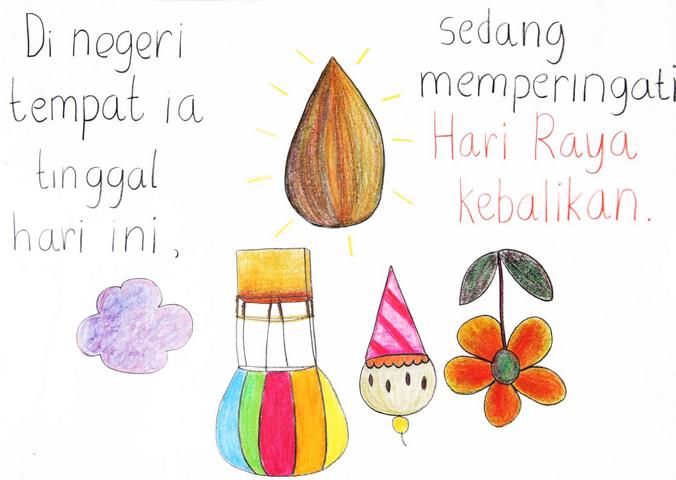 Di negeri
tempat ia
tinggal
hari ini,
sedang
memperingati
Hari Raya
kebalikan.